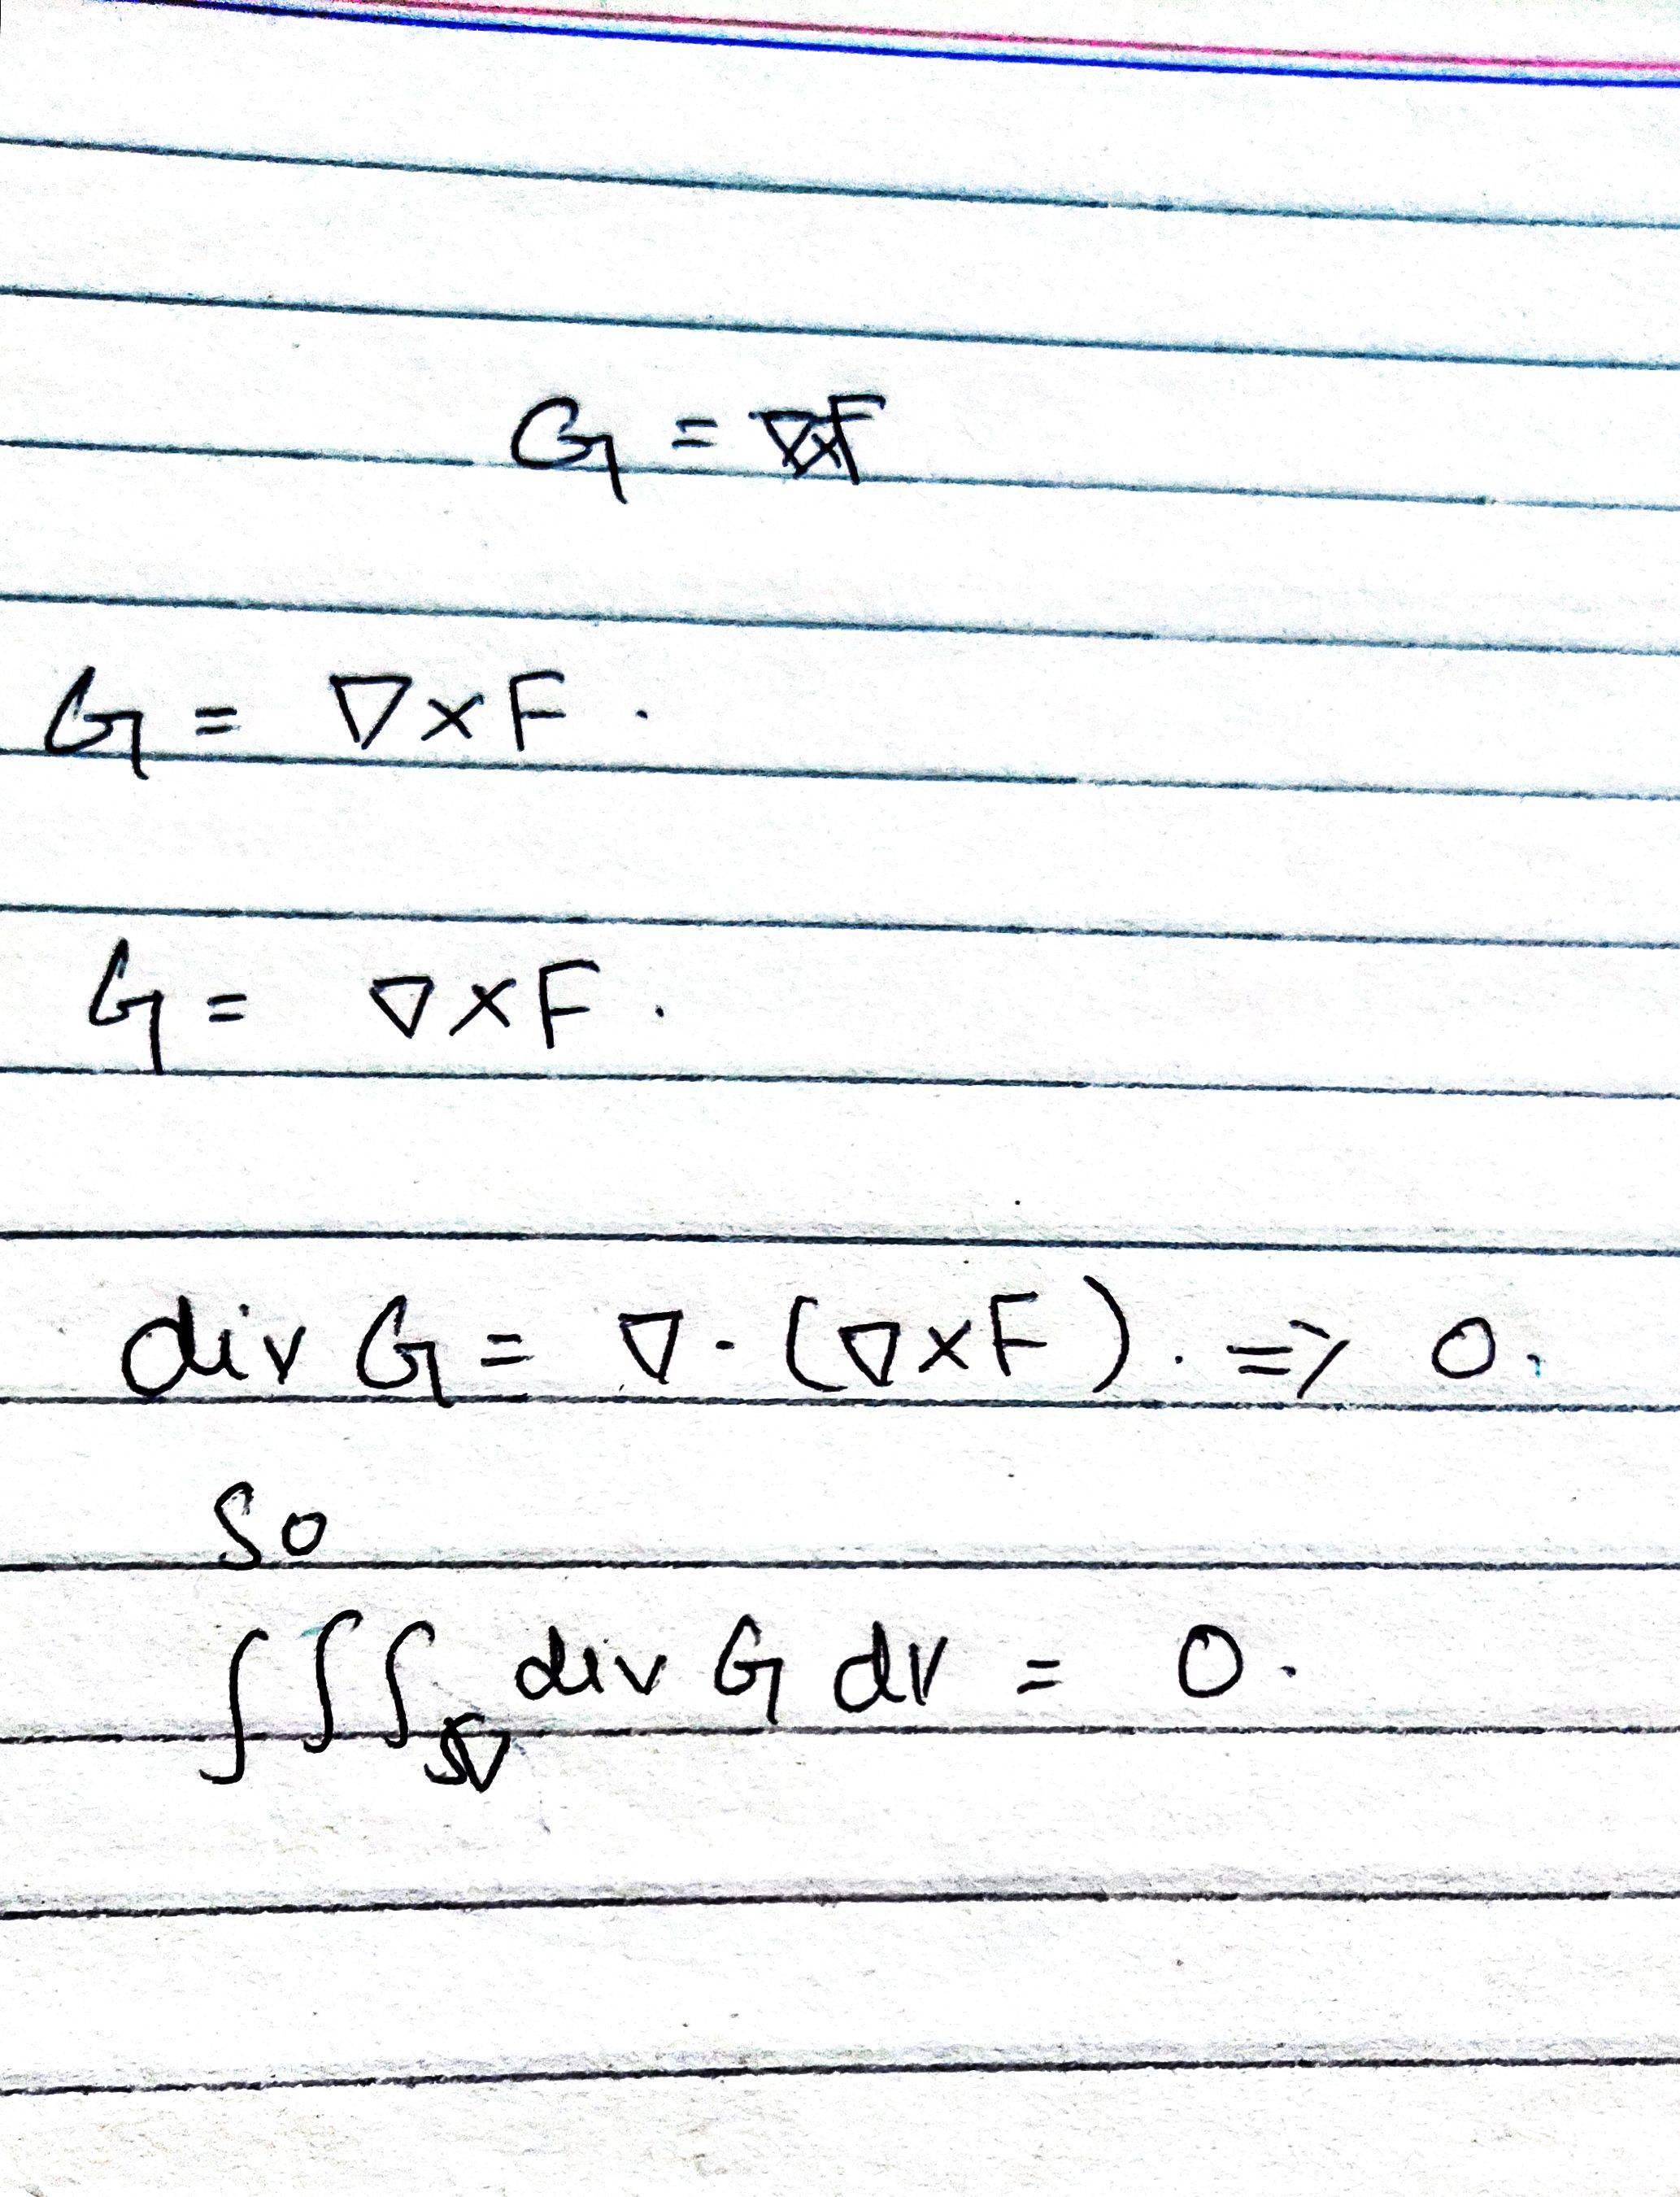 G = ∇×F
G = ∇×F .
G = ∇×F .
div G = ∇·(∇×F). => 0.
So
∫∫∫ div G dV = 0.